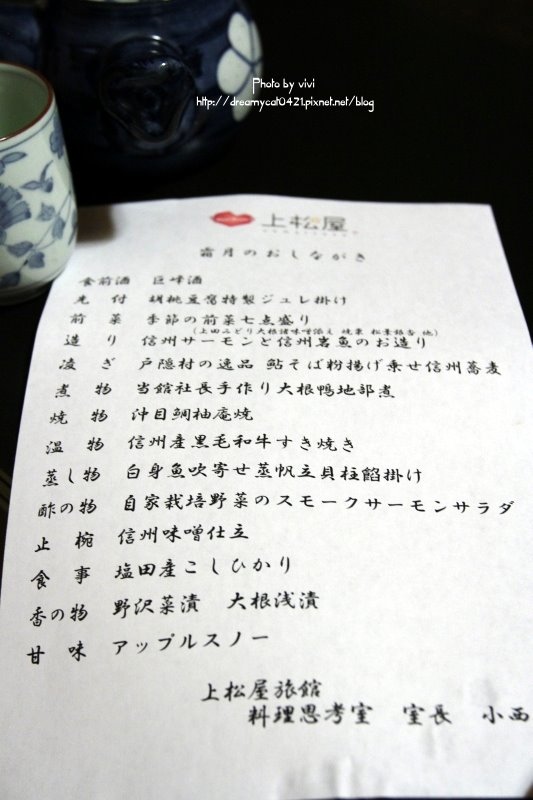 Photo by vivi
http://dreamycat0421.pixnet.net/blog
上松屋
霜月のおしながき
食前酒 巨峰酒
先 付 胡桃豆腐特製ジュレ掛け
前 菜 季節の前菜七点盛り
(上田みどり大根諸味噌添え 焼栗 松葉銀杏 他)
造 り 信州サーモンと信州岩魚のお造り
凌 ぎ 戸隠村の逸品 鮎そば粉揚げ乗せ信州蕎麦
煮 物 当館社長手作り大根鴨地部煮
焼 物 沖目鯛柚庵焼
温 物 信州産黒毛和牛すき焼き
蒸し物 白身魚吹寄せ蒸帆立貝柱餡掛け
酢の物 自家栽培野菜のスモークサーモンサラダ
止 椀 信州味噌仕立
食 事 塩田産こしひかり
香の物 野沢菜漬 大根浅漬
甘 味 アップルスノー
上松屋旅館
料理思考室 室長 小西